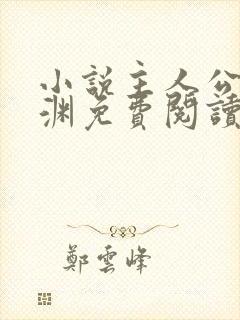 小說主人公
淵免費閱讀
鄭雲峰